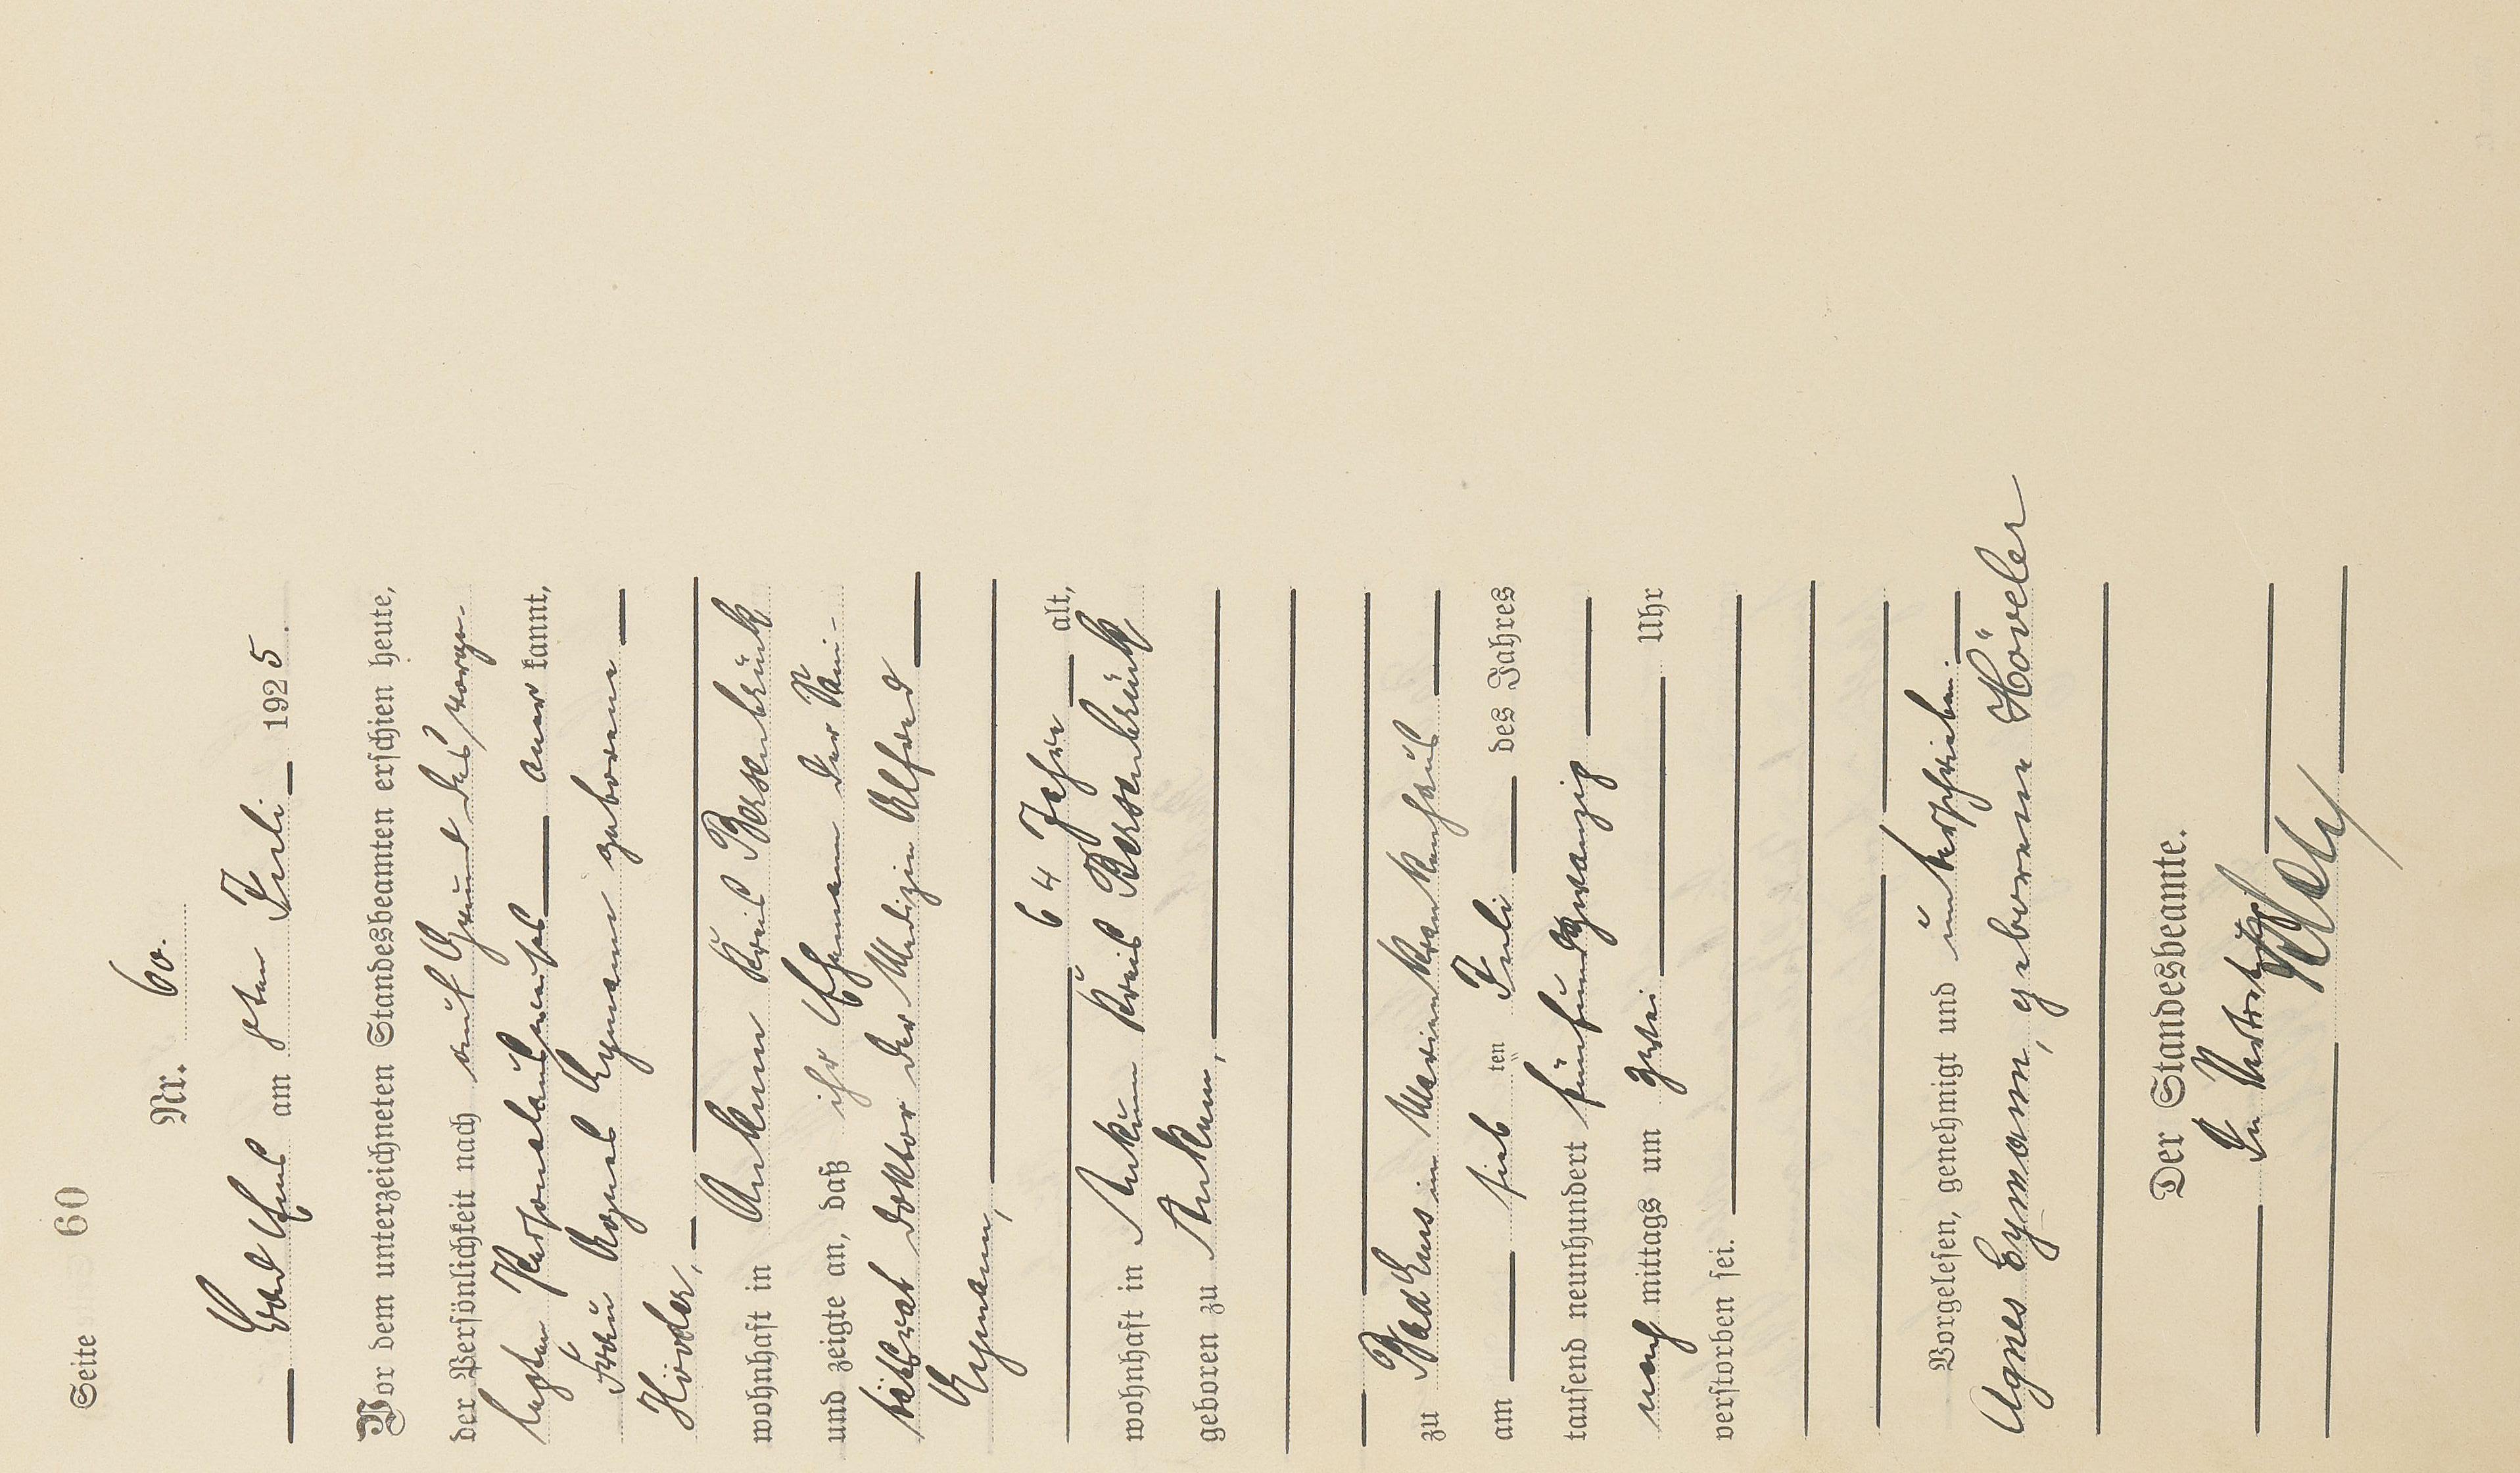 Seite 60
Nr. 60.
Bad Ems am 8ten Juli 1925.
Vor dem unterzeichneten Standesbeamten erschien heute,
der Persönlichkeit nach auf Grund des vorge-
legten Personalausweises anerkannt,
Frau Agnes Eymann geborene
Höveler,
wohnhaft in Ankum Kreis Bersenbrück
und zeigte an, daß ihr Ehemann der Sani-
tätsrat Doktor der Medizin Alfred
Eymann,
64 Jahre alt,
wohnhaft in Ankum Kreis Bersenbrück
geboren zu Ankum,
zu Bad Ems im Marienkrankenhaus
am sieb ten Juli des Jahres
tausend neunhundert fünfundzwanzig
nach mittags um zwei Uhr
verstorben sei.
Vorgelesen, genehmigt und unterschrieben.
Agnes Eymann, geborene Höveler
Der Standesbeamte.
In Vertretung